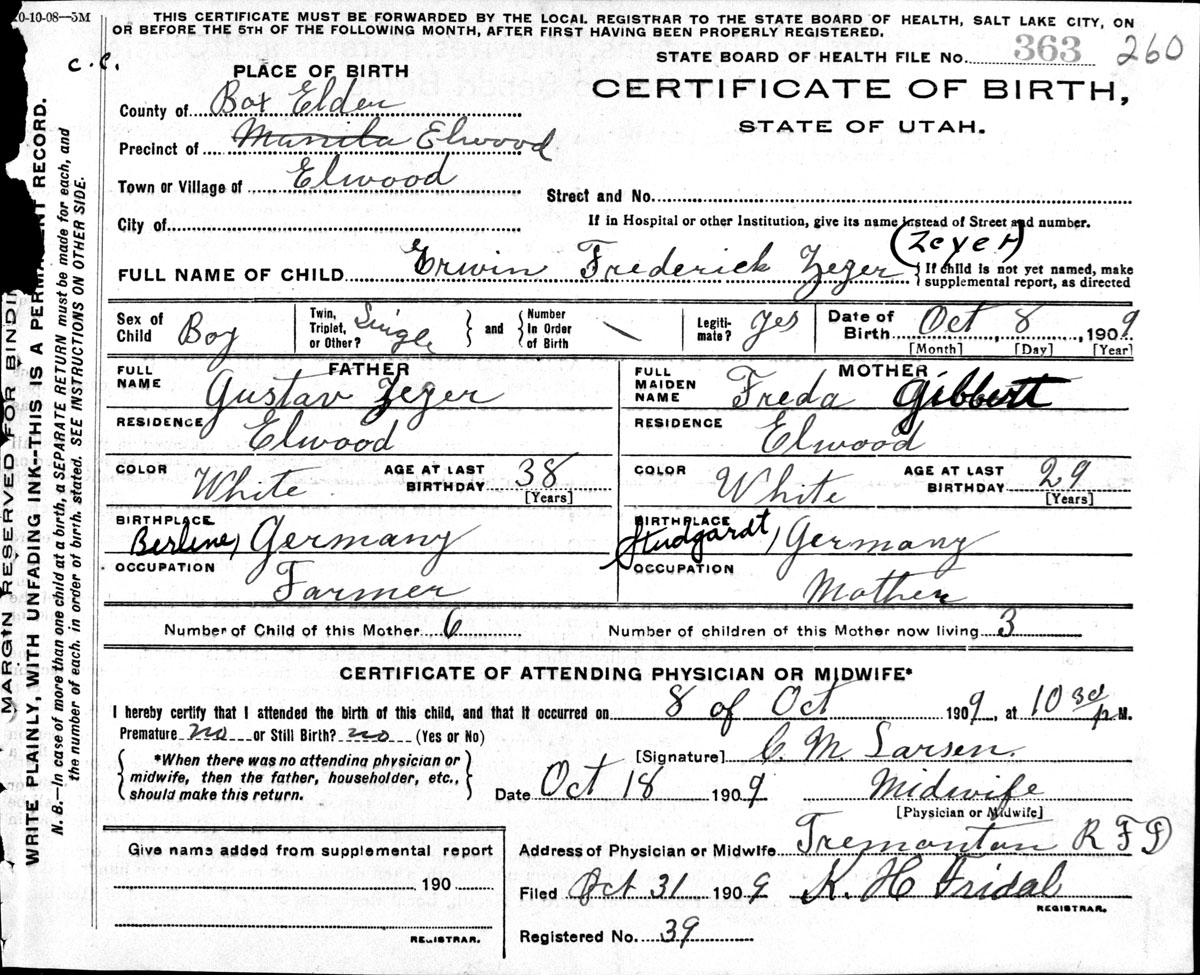 20-10-08—5M
THIS CERTIFICATE MUST BE FORWARDED BY THE LOCAL REGISTRAR TO THE STATE BOARD OF HEALTH, SALT LAKE CITY, ON
OR BEFORE THE 5TH OF THE FOLLOWING MONTH, AFTER FIRST HAVING BEEN PROPERLY REGISTERED.
STATE BOARD OF HEALTH FILE No. 363 260
c.c.
PLACE OF BIRTH
CERTIFICATE OF BIRTH,
STATE OF UTAH.
County of Box Elder
Precinct of Manila Elwood
Town or Village of Elwood
Street and No.
City of
If in Hospital or other Institution, give its name instead of Street and number.
(Zeyer)
FULL NAME OF CHILD Erwin Frederick Zeger { If child is not yet named, make
supplemental report, as directed
Sex of Child Boy
Twin, Triplet, or Other? Single } and { Number In Order of Birth \
Legiti-mate? Yes
Date of Birth Oct 8, 1909
[Month] [Day] [Year]
FATHER
FULL NAME Gustav Zeger
MOTHER
FULL MAIDEN NAME Freda Gibbert
RESIDENCE Elwood
RESIDENCE Elwood
COLOR White AGE AT LAST BIRTHDAY 38 [Years]
COLOR White AGE AT LAST BIRTHDAY 29 [Years]
BIRTHPLACE Berline, Germany
BIRTHPLACE Studgardt, Germany
OCCUPATION Farmer
OCCUPATION Mother
Number of Child of this Mother 6 Number of children of this Mother now living 3
CERTIFICATE OF ATTENDING PHYSICIAN OR MIDWIFE*
I hereby certify that I attended the birth of this child, and that it occurred on 8 of Oct 1909, at 10 30 P M.
Premature no or Still Birth? no (Yes or No)
[Signature] C. M. Larsen.
{ *When there was no attending physician or
midwife, then the father, householder, etc.,
should make this return. }
Date Oct 18 1909 Midwife
[Physician or Midwife]
Give name added from supplemental report
190
REGISTRAR.
Address of Physician or Midwife Tremonton R F D
Filed Oct 31 1909 K. H. Fridal
REGISTRAR.
Registered No. 39
MARGIN RESERVED FOR BINDIN
WRITE PLAINLY, WITH UNFADING INK--THIS IS A PERMANENT RECORD.
N. B.—In case of more than one child at a birth, a SEPARATE RETURN must be made for each, and
the number of each, in order of birth, stated. SEE INSTRUCTIONS ON OTHER SIDE.